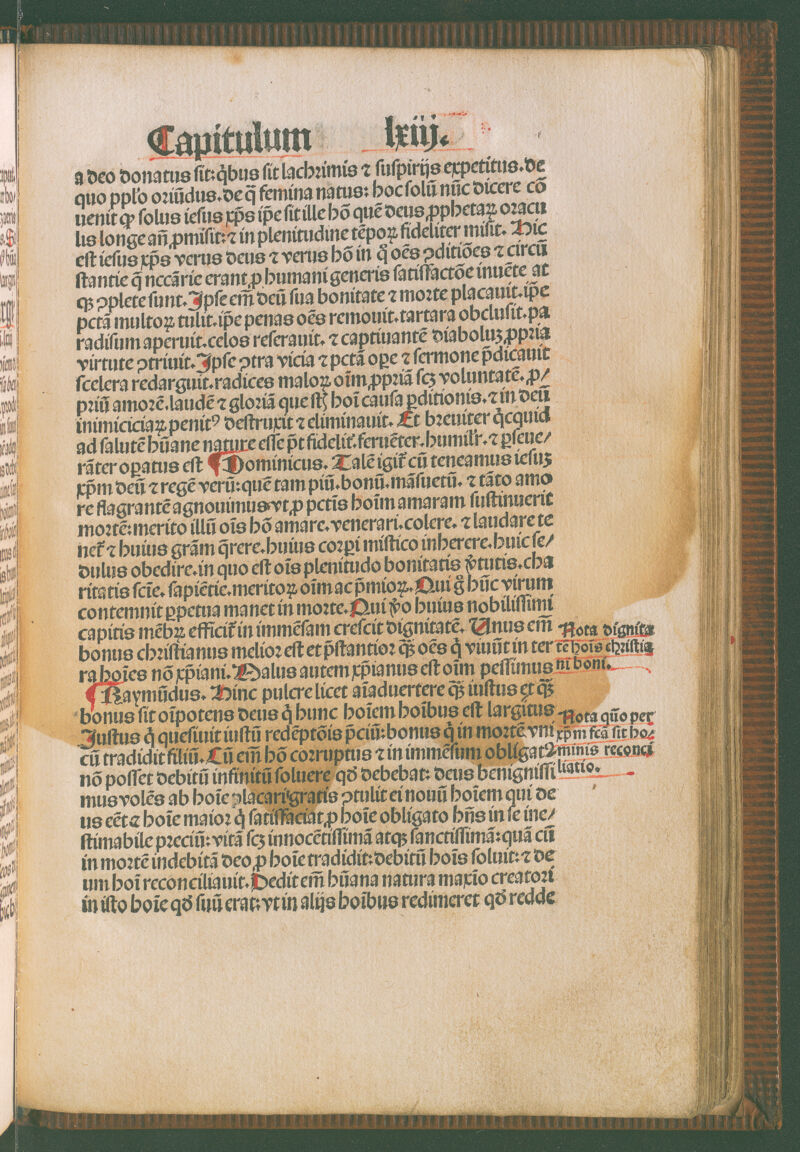 Capitulum lxiij.
a deo donatus sit: q̇bus sit lachrimis ⁊ suspirijs expetitus. de
quo pplo oriūdus. de q̄ femina natus: hoc solū nūc dicere cō
uenit ꝙ solus iesus xp̄s ip̄e sit ille hō quē deus ꝓphetaꝝ oracu
lis longe an̄ ꝓmisit: ⁊ in plenitudine tēpoꝝ fideliter misit. Hic
est iesus xp̄s verus deus ⁊ verus hō in q̊ oēs ꝯditiōes ⁊ circū
stantie q̄ nccārie erant ꝓ humani generis satisfactōe inuēte at
qꝫ ꝯplete sunt. Ipse em̄ deū sua bonitate ⁊ morte placauit. ip̄e
pctā multoꝝ tulit. ip̄e penas oēs remouit. tartara obclusit. pa
radisum aperuit. celos reserauit. ⁊ captiuantē diaboluꝫ ꝓpria
virtute ꝯtriuit. Ipse ꝯtra vicia ⁊ pctā oꝑe ⁊ sermone p̄dicauit
scelera redarguit. radices maloꝝ oīm ꝓpriā scꝫ voluntatē. ꝓ/
priū amorē. laudē ⁊ gloriā que st̄ hoī causa ꝑditionis. ⁊ in deū
inimiciciaꝝ penitꝰ destruxit ⁊ eliminauit. Et breuiter q̇cquid
ad salutē hūane nature esse p̄t fidelit̄. feruēter. humilr̄. ⁊ ꝑseue/
rāter oꝑatus est ¶ Dominicus. Talē igit̄ cū teneamus iesuꝫ
xp̄m deū ⁊ regē verū: quē tam piū. bonū. māsuetū. ⁊ tāto amo
re flagrantē agnouimus vt ꝓ pctīs hoīm amaram sustinuerit
mortē: merito illū oīs hō amare. venerari. colere. ⁊ laudare te
net̄ ⁊ huius grām q̄rere. huius corꝑi mistico inherere. huic se/
dulus obedire. in quo est oīs plenitudo bonitatis v̄tutis. cha
ritatis scīe. sapiētie. meritoꝝ oīm ac p̄mioꝝ. Qui g̊ hūc virum
contemnit ꝑpetua manet in morte. Qui v̊o huius nobilissimi
capitis mēbꝝ efficit̄ in immēsam crescit dignitatē. Unus em̄
bonus christianus melior est et p̄stantior qꝫ̄ oēs q̇ viuūt in ter
ra hoīes nō xp̄iani. Malus autem xp̄ianus est oīm pessimus
¶ Raymūdus. Hinc pulcre licet aīaduertere qꝫ̄ iustus et qꝫ̄
bonus sit oīpotens deus q̇ hunc hoīem hoībus est largitus
Iustus q̇ quesiuit iustū redēptōis p̄ciū: bonus q̇ in mortē vni
cū tradidit filiū. Cū em̄ hō corruptus ⁊ in immēsum obligatꝰ
nō posset debitū infinitū soluere qd̄ debebat: deus benignissi
mus volēs ab hoīe placari gratis ꝯtulit ei nouū hoīem qui de
us eēt ⁊ hoīe maior q̇ satisfaciat ꝓ hoīe obligato hn̄s in se ine/
stimabile preciū: vitā scꝫ innocētissimā atqꝫ sanctissimā: quā cū
in mortē indebitā deo ꝓ hoīe tradidit: debitū hoīs soluit: ⁊ de
um hoī reconciliauit. Dedit em̄ hūana natura maxīo creatori
in isto hoīe qd̄ suū erat: vt in alijs hoībus redimeret qd̄ redde
Nota dignita
tē hoīs christia
ni boni.
Nota quō per
xp̄m fcā sit ho/
minis reconci
liatio.